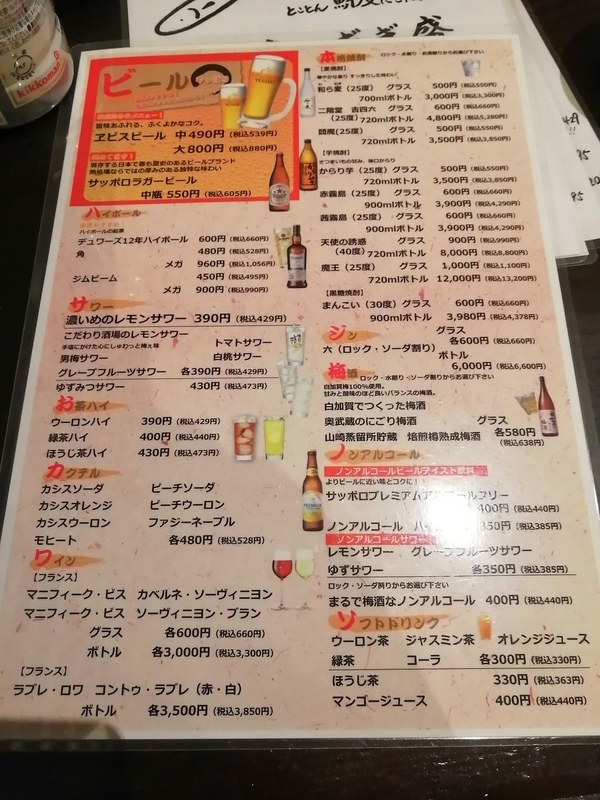 とことん
kikkoman
ビール
旨味あふれる、ふくよかなコク。
ヱビスビール 中490円(税込539円)
大800円(税込880円)
現存する日本で最も歴史のあるビールブランド
熱処理ならではの厚みのある独特な味わい
サッポロラガービール
中瓶 550円(税込605円)
ハイボール
ハイボールの起源
デュワーズ12年ハイボール 600円(税込660円)
角 480円(税込528円)
メガ 960円(税込1,056円)
ジムビーム 450円(税込495円)
メガ 900円(税込990円)
サワー
濃いめのレモンサワー 390円(税込429円)
こだわり酒場のレモンサワー
手塩にかけた心にしゅわっと梅ぇ味 トマトサワー
男梅サワー 白桃サワー
グレープフルーツサワー 各390円(税込429円)
ゆずみつサワー 430円(税込473円)
お茶ハイ
ウーロンハイ 390円(税込429円)
緑茶ハイ 400円(税込440円)
ほうじ茶ハイ 430円(税込473円)
カクテル
カシスソーダ ピーチソーダ
カシスオレンジ ピーチウーロン
カシスウーロン ファジーネーブル
モヒート 各480円(税込528円)
ワイン
【フランス】
マニフィーク・ビス カベルネ・ソーヴィニヨン
マニフィーク・ビス ソーヴィニヨン・ブラン
グラス 各600円(税込660円)
ボトル 各3,000円(税込3,300円)
【フランス】
ラブレ・ロワ コントゥ・ラブレ(赤・白)
ボトル 各3,500円(税込3,850円)
本格焼酎 ロック・水割り・お湯割りからお選び下さい
【麦焼酎】
華やかな香り すっきりした味わい
和ら麦(25度) グラス 500円(税込550円)
700mlボトル 3,000円(税込3,300円)
二階堂 吉四六 グラス 600円(税込660円)
(25度) 720mlボトル 4,800円(税込5,280円)
閻魔(25度) グラス 500円(税込550円)
720mlボトル 3,500円(税込3,850円)
【芋焼酎】
さつまいもの甘み、辛口からり
からり芋(25度) グラス 500円(税込550円)
720mlボトル 3,500円(税込3,850円)
赤霧島(25度) グラス 600円(税込660円)
900mlボトル 3,900円(税込4,290円)
茜霧島(25度) グラス 600円(税込660円)
900mlボトル 3,900円(税込4,290円)
天使の誘惑 グラス 900円(税込990円)
(40度) 720mlボトル 8,000円(税込8,800円)
魔王(25度) グラス 1,000円(税込1,100円)
720mlボトル 12,000円(税込13,200円)
【黒糖焼酎】
まんこい(30度) グラス 600円(税込660円)
900mlボトル 3,980円(税込4,378円)
ジン グラス
六(ロック・ソーダ割り) 各600円(税込660円)
ボトル
6,000円(税込6,600円)
梅酒 ロック・水割り・ソーダ割りからお選び下さい
白加賀梅100%使用。
甘みと酸味のほど良いバランスの梅酒。
白加賀でつくった梅酒
奥武蔵のにごり梅酒 グラス
山崎蒸留所貯蔵 焙煎樽熟成梅酒 各580円
(税込638円)
ノンアルコール
ノンアルコールビールテイスト飲料
よりビールに近い味とコクに!
サッポロプレミアムアルコールフリー
400円(税込440円)
ノンアルコール 350円(税込385円)
ノンアルコールサワー
レモンサワー グレープフルーツサワー
ゆずサワー 各350円(税込385円)
ロック・ソーダ割りからお選び下さい
まるで梅酒なノンアルコール 400円(税込440円)
ソフトドリンク
ウーロン茶 ジャスミン茶 オレンジジュース
緑茶 コーラ 各300円(税込330円)
ほうじ茶 330円(税込363円)
マンゴージュース 400円(税込440円)